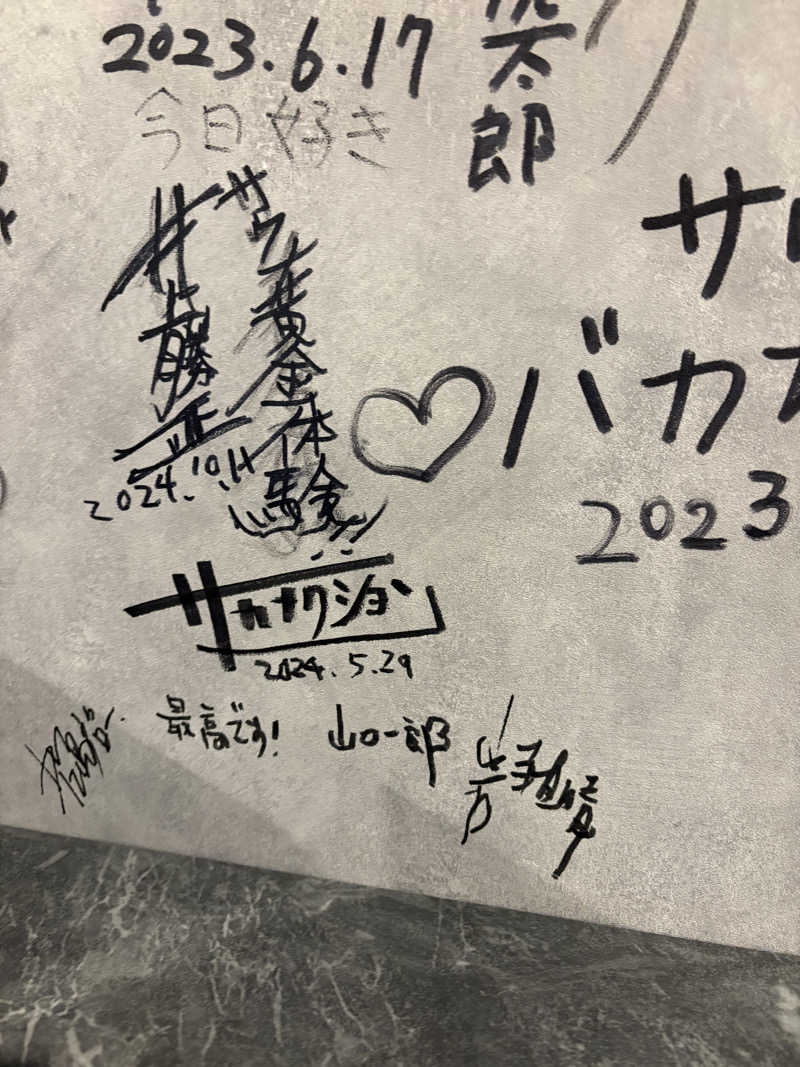 2023.6.17
太郎
今日好き
サウナ黄金体験!!
井上勝正
2024.10.11
サ
バカ
2023
サカナクション
2024.5.29
最高です!
山口一郎